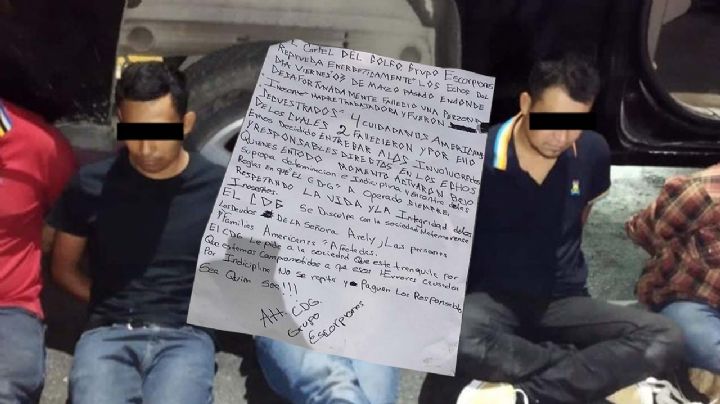 El Cartel DEL GOLFO Grupo Escorpiones
REPRUEBA ENERGETIDAMENTE LOS Echos DEL
DIA VIERNES 03 DE MARZO PASADO EN DONDE
DESAFORTUNADAMENTE FALLECIO UNA PERSONA
Inocente MADRE TRABAJADORA Y FUERON
SECUESTRADOS 4 CUIDADANOS AMERICANOS
DE LOS CUALES 2 FALLECIERON Y POR EllO
Emos Decidido ENTREGAR A LOS INVOLUCRADOS
Y RESPONSABLES DIRECTOS EN LOS EcHOS
Quienes EN TODO MOMENTO ACTUARON BAJO
Su propia determinacion e Indiciplina y Encontra de las
Reglas en que EL "CDG" A Operado SIEMPRE
RESPETANDO LA VIDA Y LA Integridad de los
Inocentes.
EL CDG Se Disculpa con la sociedad Matamorense
Los Deudos DE LA SEÑORA Arely, y Las personas
y Familias Americanas Afectadas.
El CDG Le pide a la sociedad Que este tranquila por
Que estamos comprometidos a que esos Errores causados
Por Indiciplina No se repita y Paguen Los Responsables
Sea Quien Sea!!!
Att. CDG.
Grupo
Escorpiones